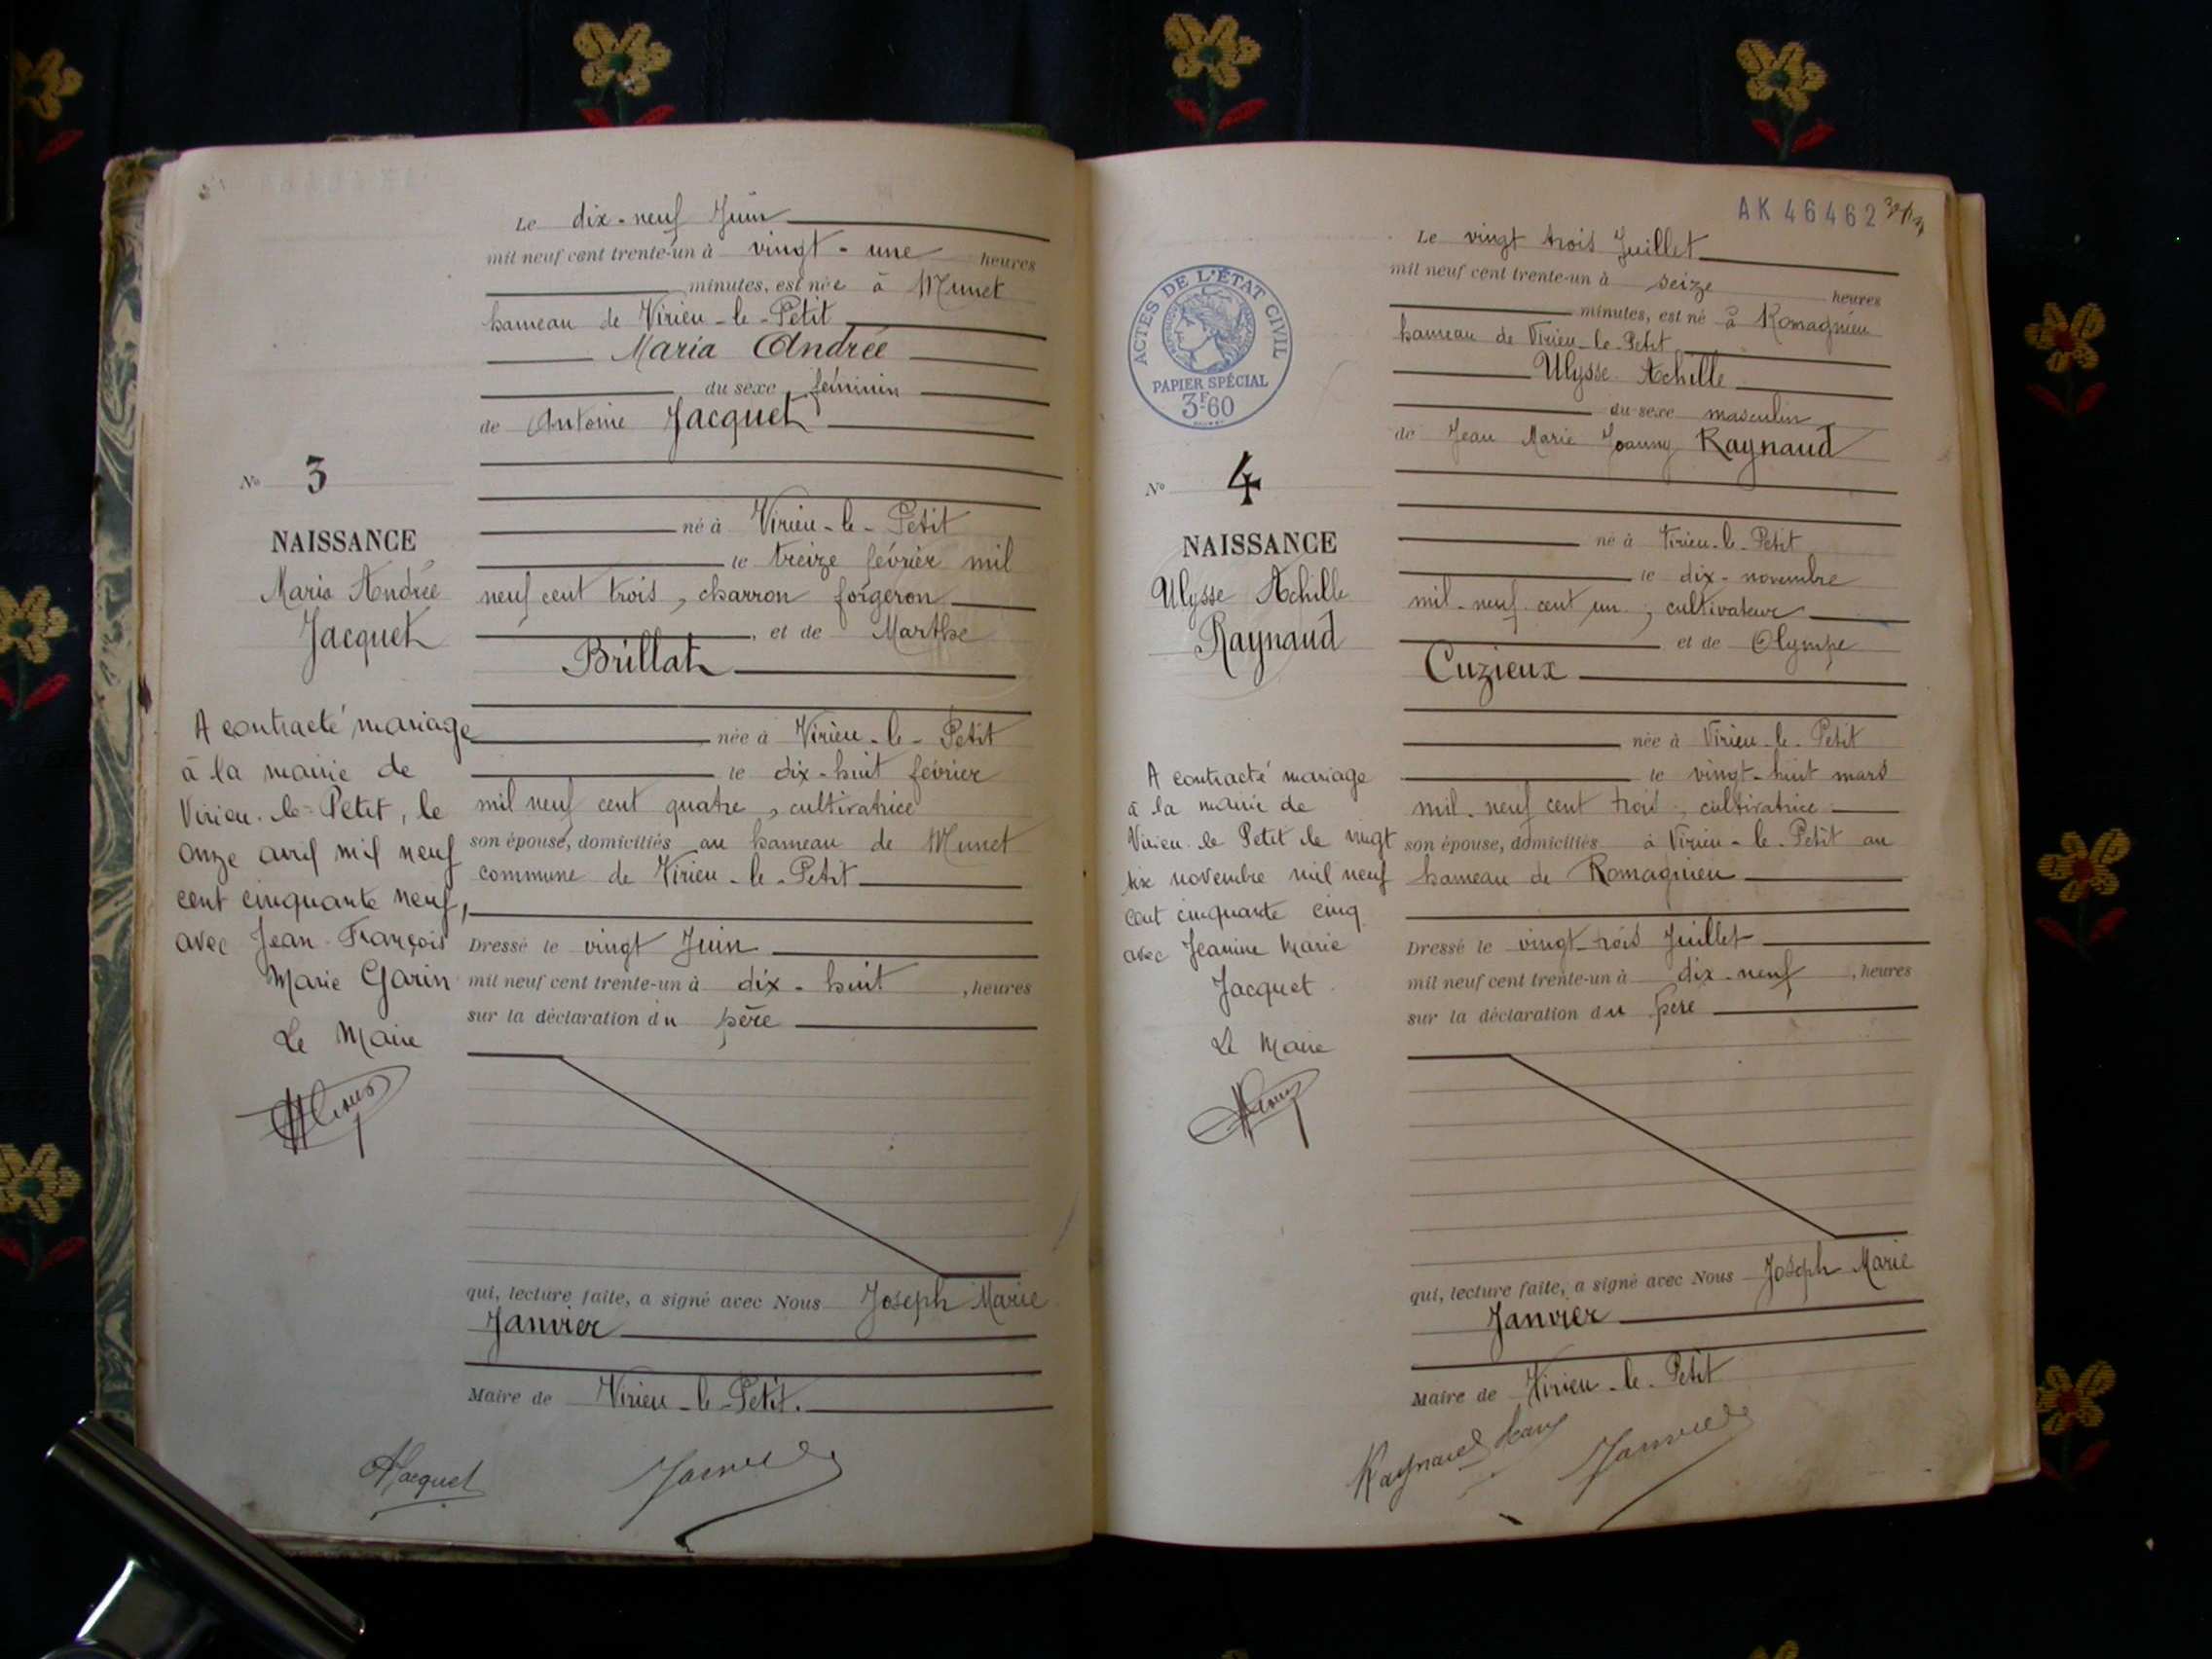 Le dix-neuf Juin
mil neuf cent trente-un à vingt-une heures
minutes, est née à Munet
hameau de Virieu-le-Petit
Maria Andrée
du sexe féminin
de Antoine Jacquet
N° 3
né à Virieu-le-Petit
NAISSANCE
le treize février mil
Maria Andrée
neuf cent trois, charron forgeron
Jacquet
, et de Marthe
Brillat
A contracté mariage
née à Virieu-le-Petit
à la mairie de
le dix-huit février
Virieu-le-Petit, le
mil neuf cent quatre, cultivatrice
onze avril mil neuf
son épouse, domiciliés au hameau de Munet
cent cinquante neuf,
commune de Virieu-le-Petit
avec Jean-François
Dressé le vingt Juin
Marie Garin
mil neuf cent trente-un à dix-huit, heures
sur la déclaration du père
Le Maire
qui, lecture faite, a signé avec Nous Joseph Marie
Janvier
Maire de Virieu-le-Petit.
AJacquet
Janvier
AK 46462
Le vingt trois Juillet
mil neuf cent trente-un à seize heures
minutes, est né à Romagnieu
hameau de Virieu-le-Petit
Ulysse Achille
ACTES DE L'ÉTAT CIVIL
PAPIER SPÉCIAL
3F.60
du sexe masculin
de Jean Marie Joanny Raynaud
N° 4
né à Virieu-le-Petit
NAISSANCE
le dix-novembre
Ulysse Achille
mil-neuf-cent un, cultivateur
Raynaud
et de Olympe
Cuzieux
née à Virieu-le-Petit
A contracté mariage
le vingt-huit mars
à la mairie de
mil-neuf cent trois, cultivatrice
Virieu-le Petit le vingt
son épouse, domiciliés à Virieu-le-Petit au
six novembre mil neuf
hameau de Romagnieu
cent cinquante cinq
avec Jeanine Marie
Dressé le vingt-trois Juillet
Jacquet
mil neuf cent trente-un à dix-neuf, heures
sur la déclaration du père
Le Maire
qui, lecture faite, a signé avec Nous Joseph Marie
Janvier
Maire de Virieu-le-Petit
Raynaud Jean
Janvier